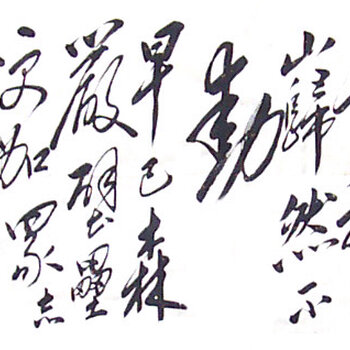 巋然不
動
早已森
嚴壁壘
更加眾志